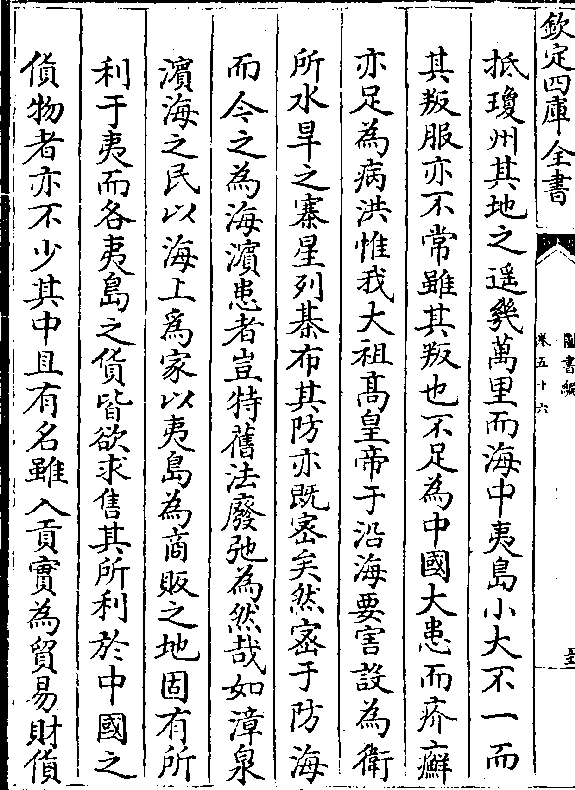 欽定四庫全書
圖書編
卷五十六
抵瓊州其地之遥幾萬里而海中夷島小大不一而
其叛服亦不常雖其叛也不足為中國大患而疥癬
亦足為病洪惟我太祖高皇帝于沿海要害設為衛
所水旱之寨星列棊布其防亦既宻矣然宻于防海
而令之為海濵患者豈特舊法廢弛為然哉如漳泉
濵海之民以海上爲家以夷島為商販之地固有所
利于夷而各夷島之貨皆欲求售其所利於中國之
貨物者亦不少其中且有名雖入貢實為貿易財貨